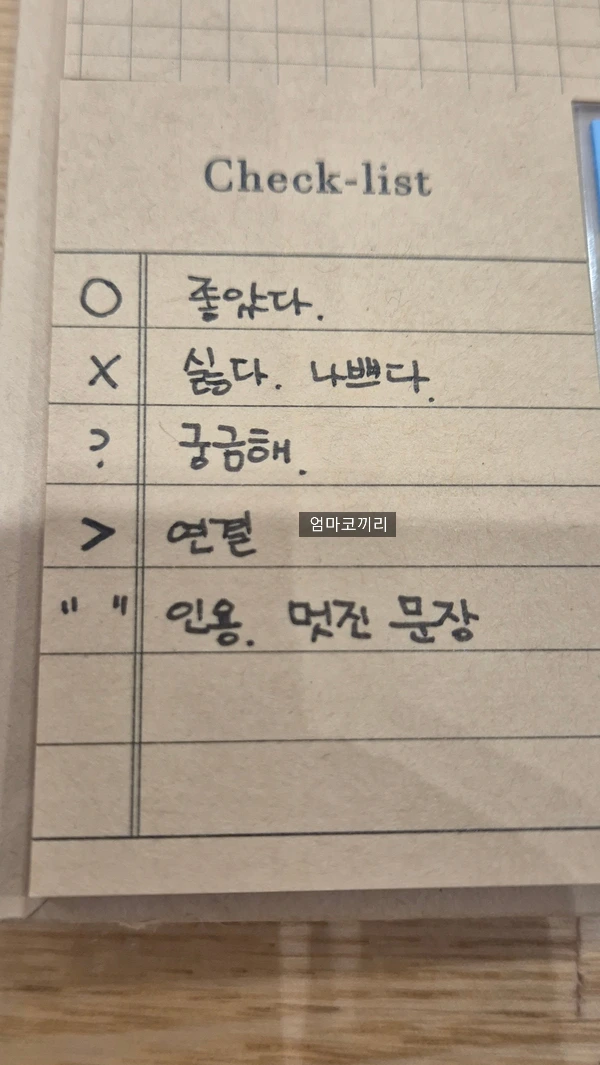 Check-list
O 좋았다.
X 싫다. 나쁘다.
? 궁금해.
> 연결
엄마코끼리
" " 인용. 멋진 문장